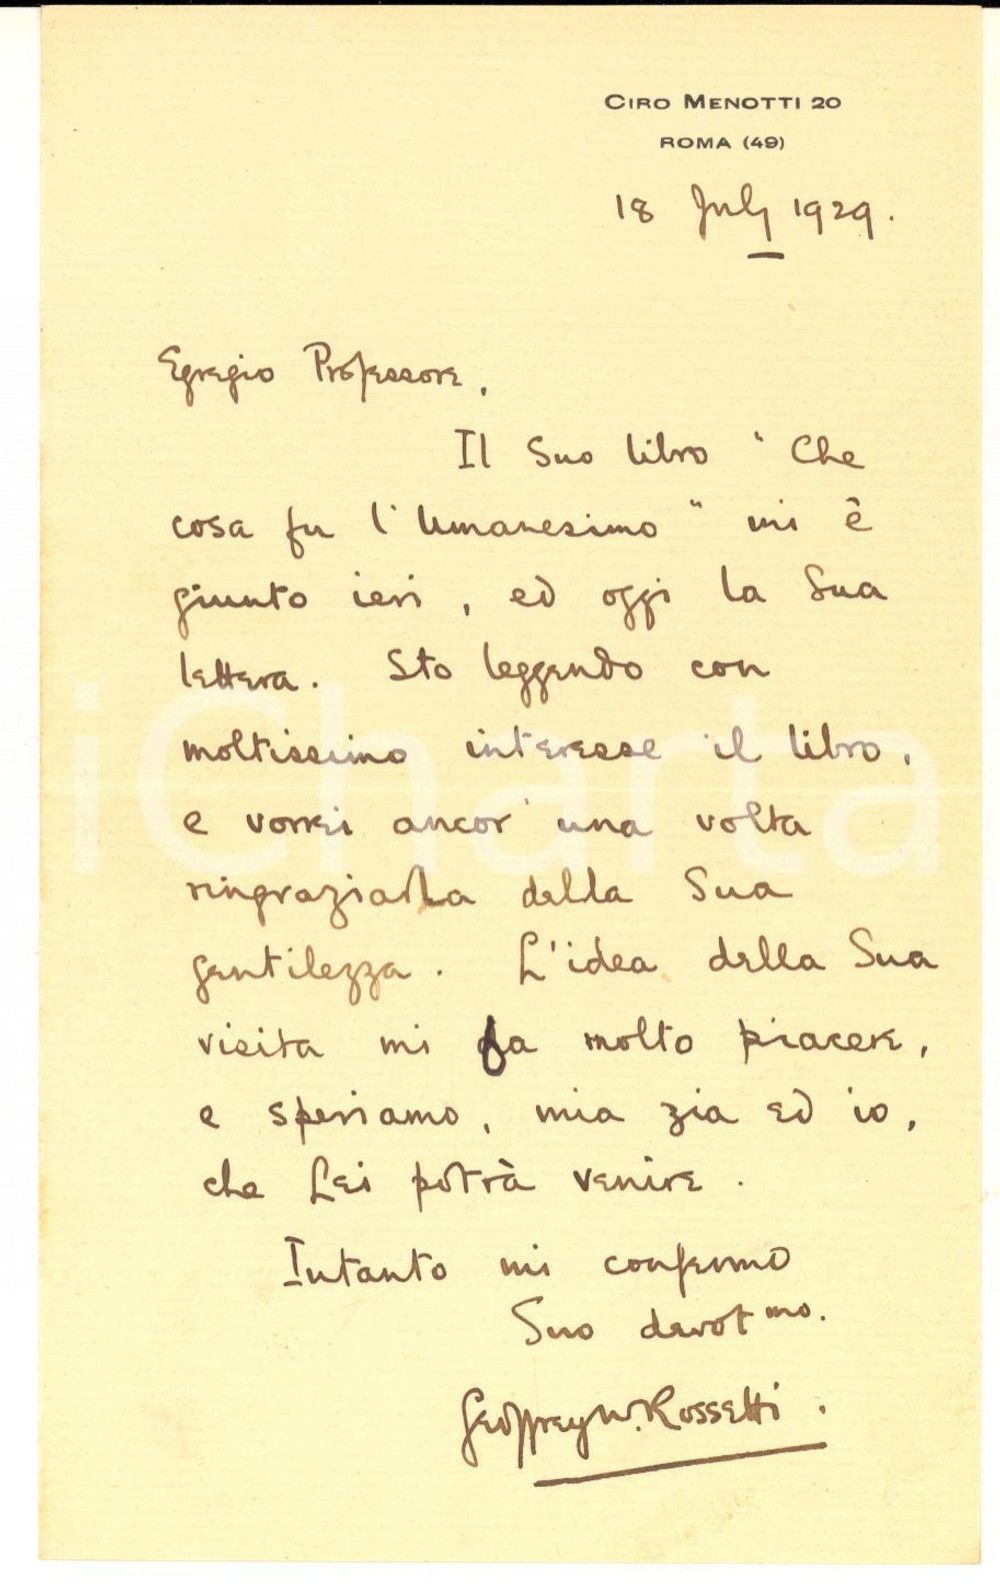 CIRO MENOTTI 20
ROMA (49)
18 July 1929.
Egregio Professore,
Il Suo libro "Che
cosa fu l'Umanesimo" mi è
giunto ieri, ed oggi la Sua
lettera. Sto leggendo con
moltissimo interesse il libro,
e vorrei ancor'una volta
ringraziarLa della Sua
gentilezza. L'idea della Sua
visita mi fa molto piacere,
e speriamo, mia zia ed io,
che Lei potrà venire.
Intanto mi confermo
Suo devotmo.
Geoffrey W. Rossetti.
iCharta